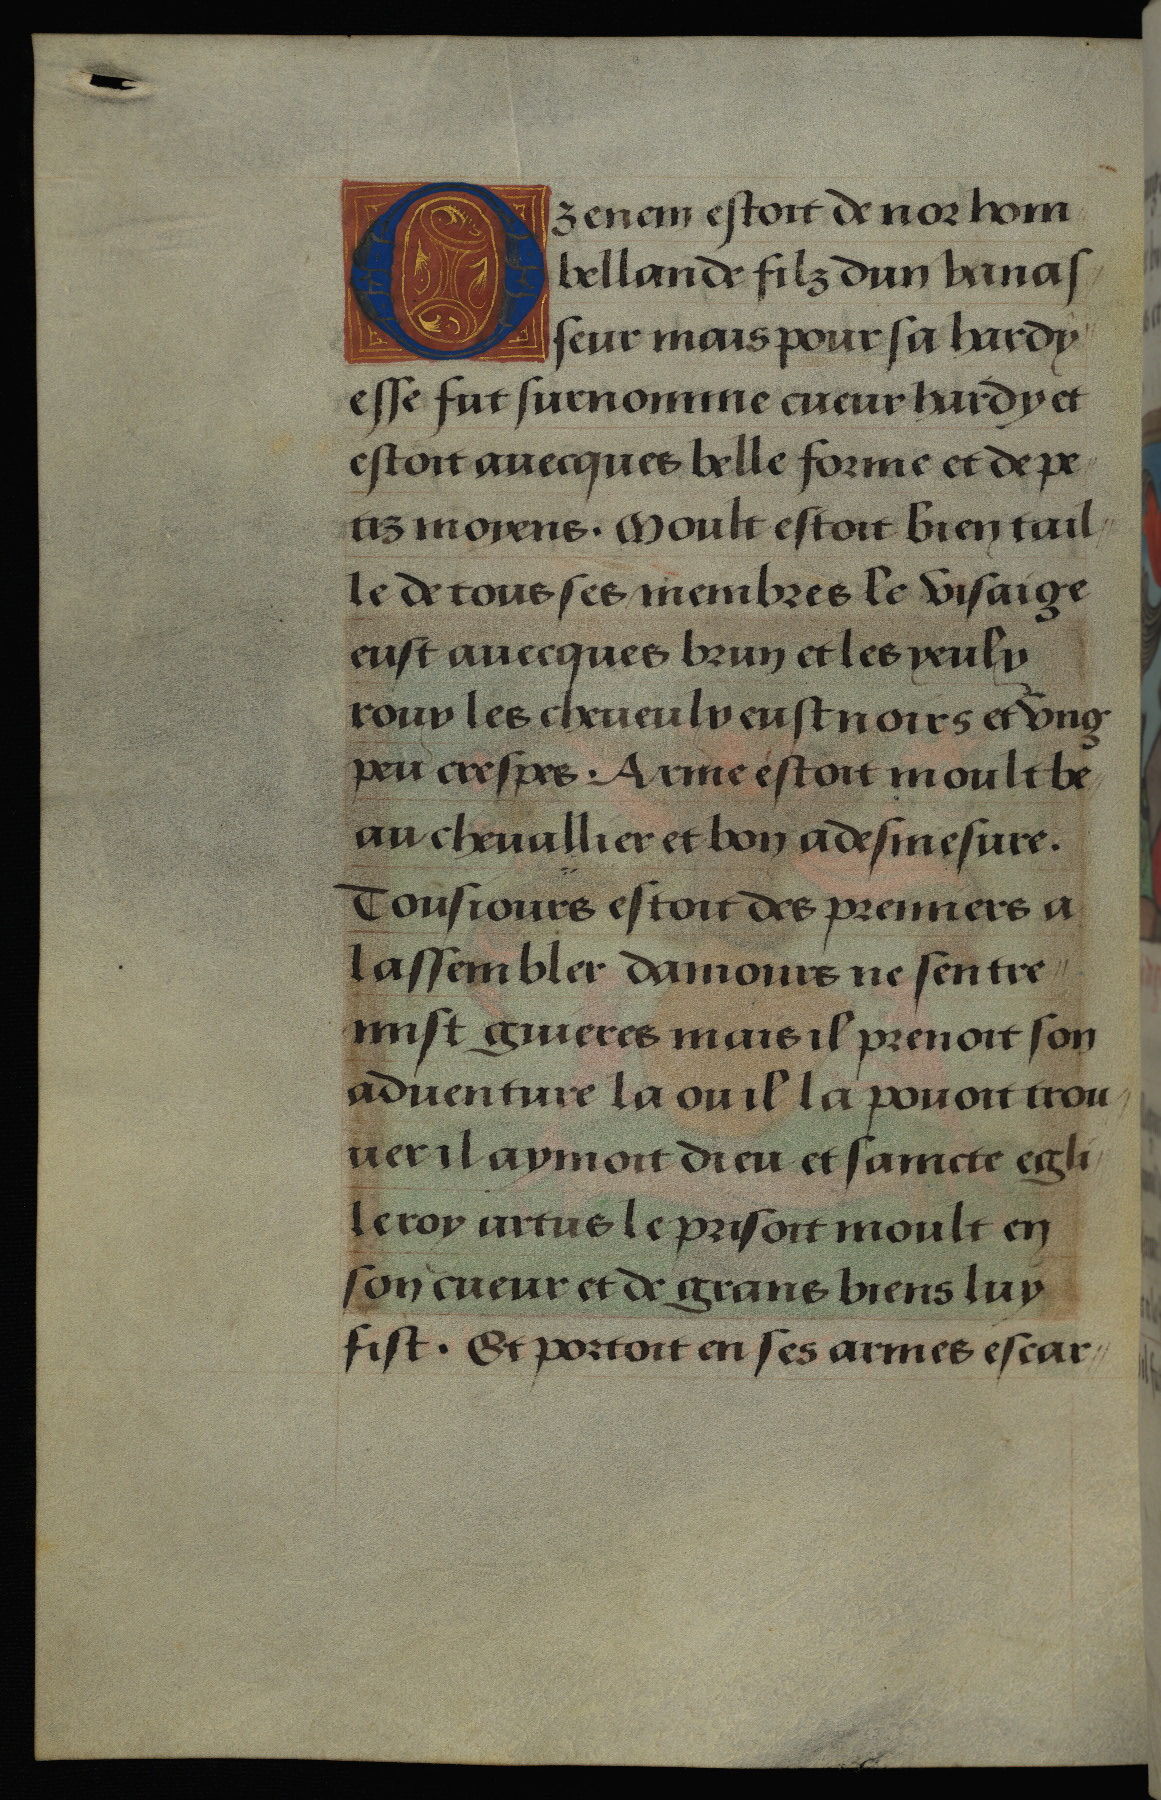 Ozenem estoit de norhom
bellande filz dun vanas
seur mais pour sa hardy
esse fut surnomme cueur hardy et
estoit auecques belle forme et de pe
tiz moyens. Moult estoit bien tail
le de tous ses membres le visaige
eust auecques brun et les yeulx
roux les cheueulx eust noirs et vng
peu crespes. Arme estoit moult be
au cheuallier et bon a desmesure.
Tousiours estoit des premiers a
lassembler damours ne sentre
mist guieres mais il prenoit son
aduenture la ou il la pouoit trou
uer il aymoit dieu et saincte egli
le roy artus le prisoit moult en
son cueur et de grans biens luy
fist. Et portoit en ses armes escar